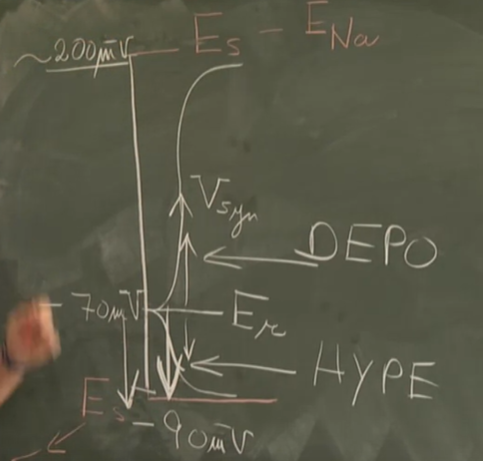 ~200mV Es - ENa
Vsyn
DEPO
- 70mV Er
HYPE
Es
-90mV